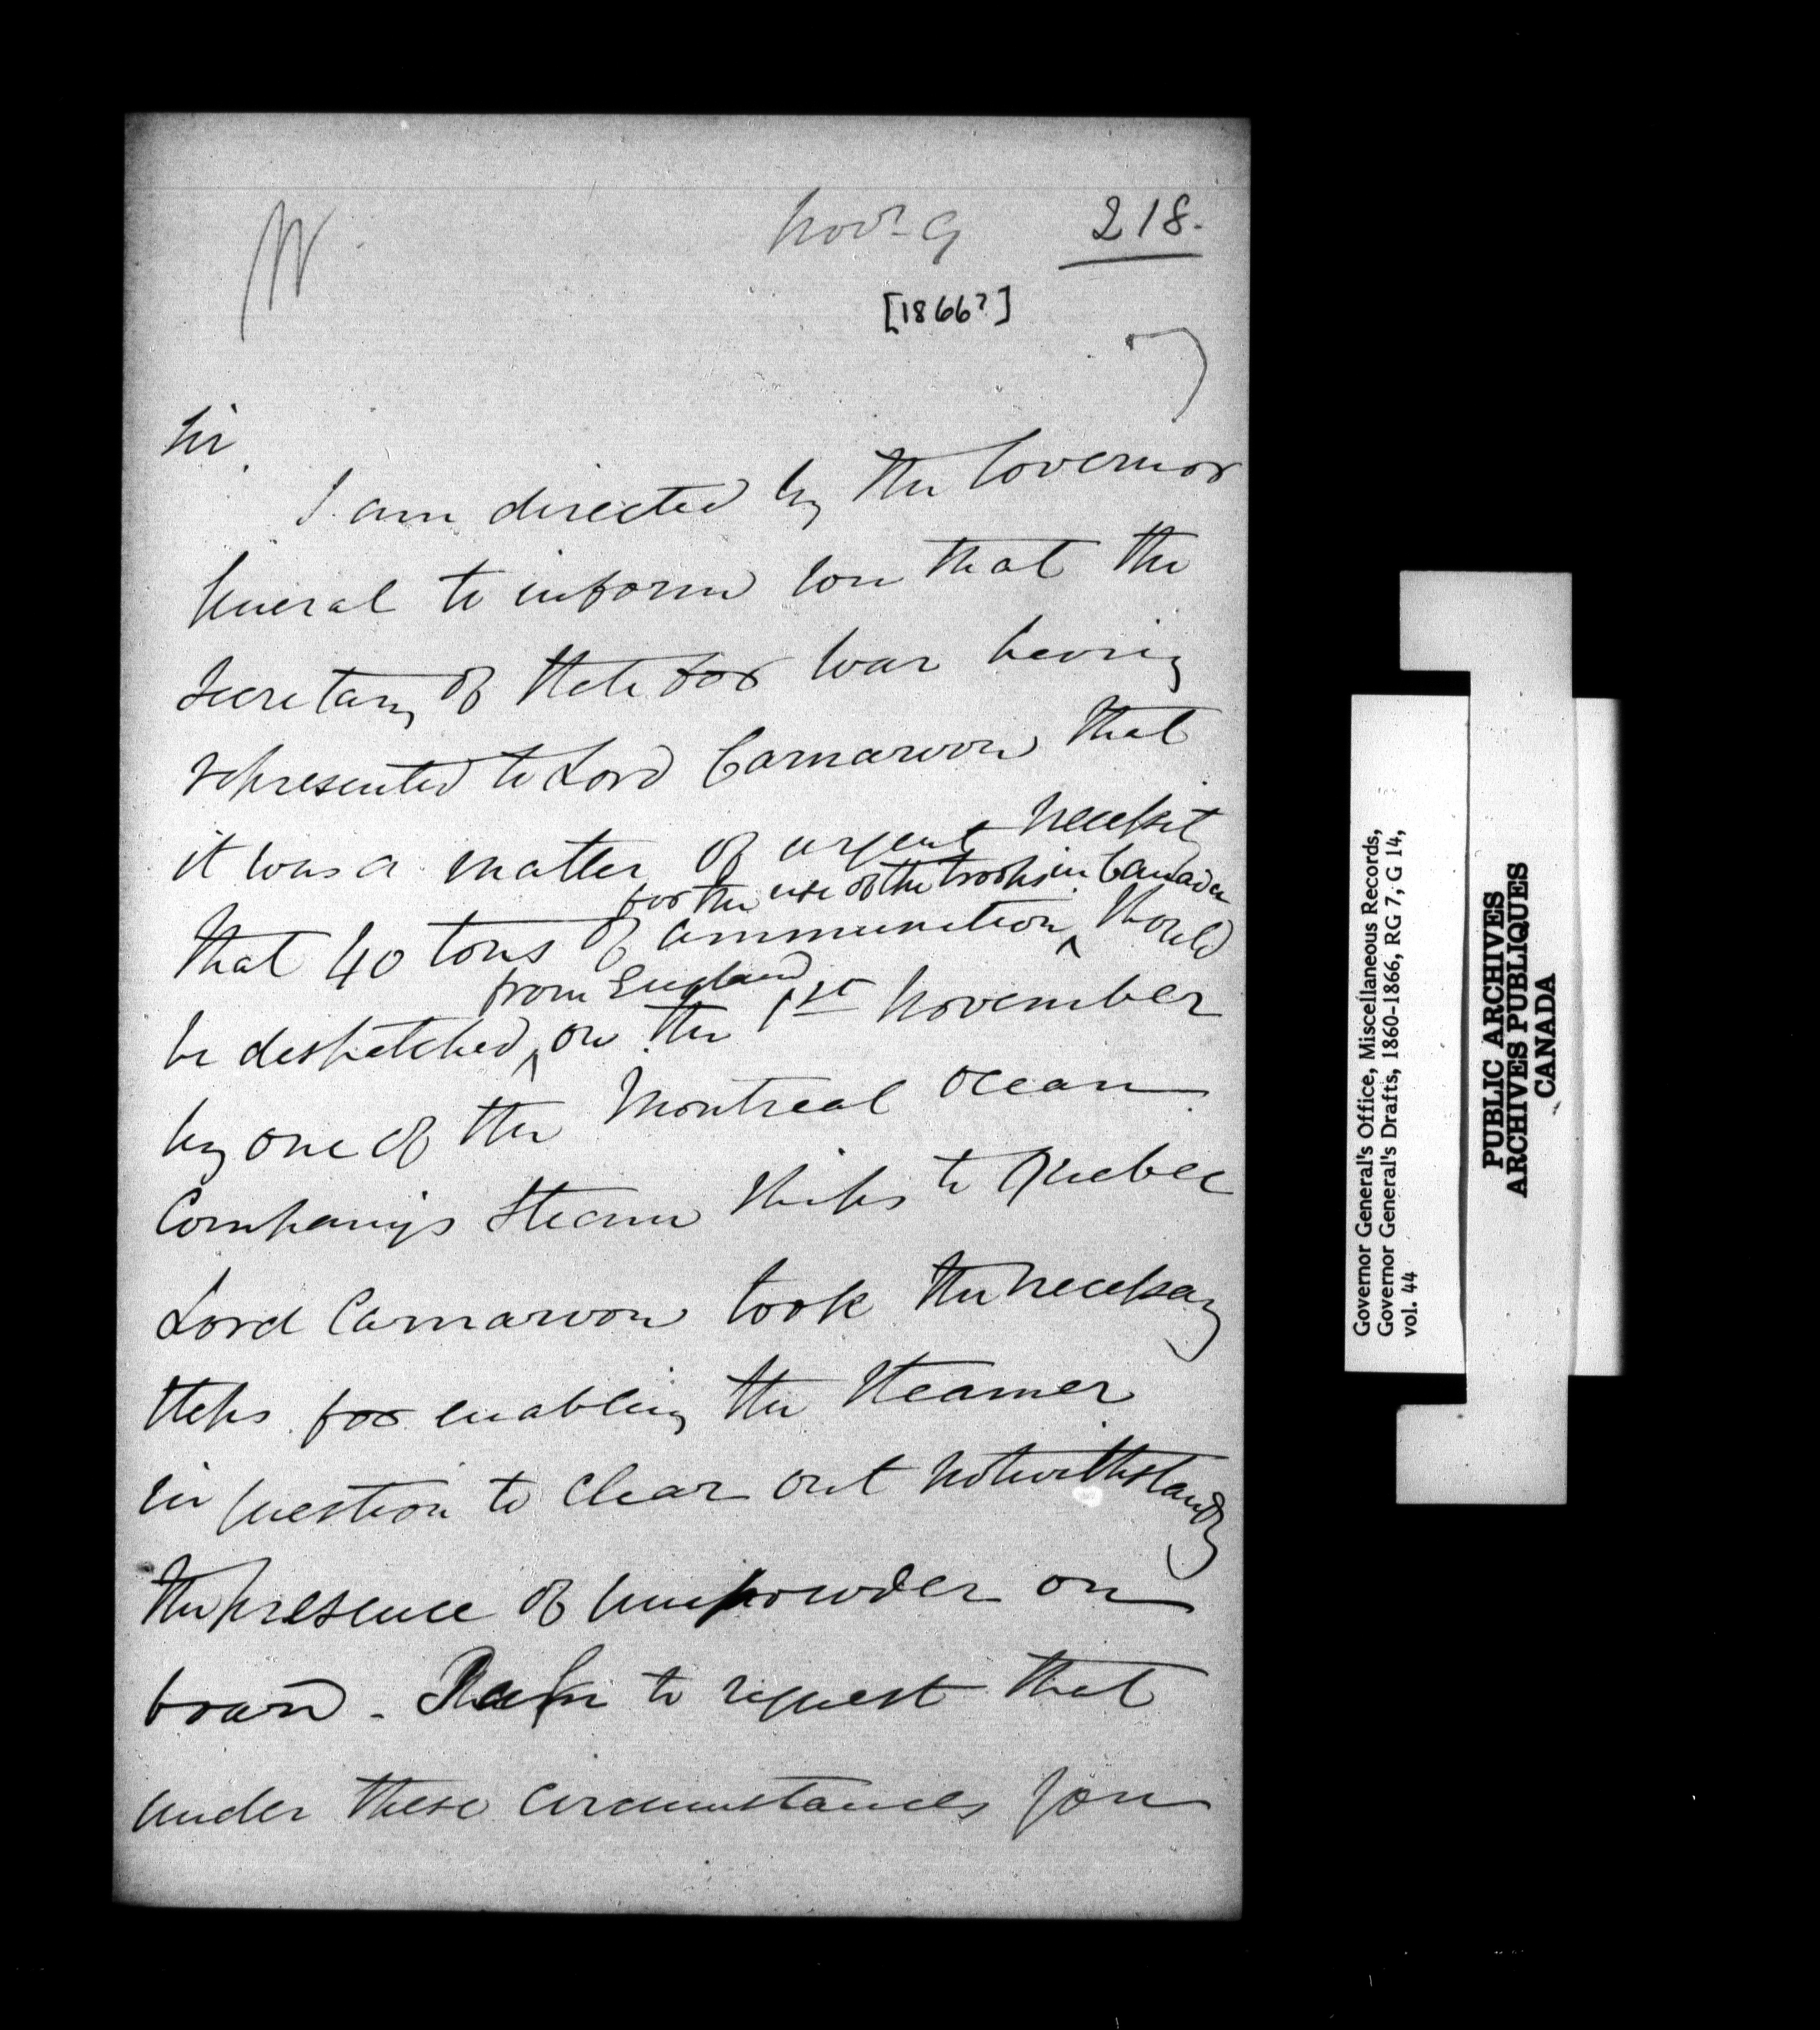 Novr 9
218.
[1866?]
Sir,
I am directed by the Governor
General to inform you that the
Secretary of State for War having
represented to Lord Carnarvon that
it was a matter of urgent necessity
for the use of the troops in Canada
that 40 tons of ammunition ^ should
from England
be despatched ^ on the 1st November
by one of the Montreal Ocean
Company's Steam Ships to Quebec
Lord Carnarvon took the necessary
steps for enabling the Steamer
in question to clear out notwithstandg
the presence of Gunpowder on
board - to request that
under these circumstances you
Governor General's Office, Miscellaneous Records,
Governor General's Drafts, 1860-1866, RG 7, G 14,
vol. 44
PUBLIC ARCHIVES
ARCHIVES PUBLIQUES
CANADA